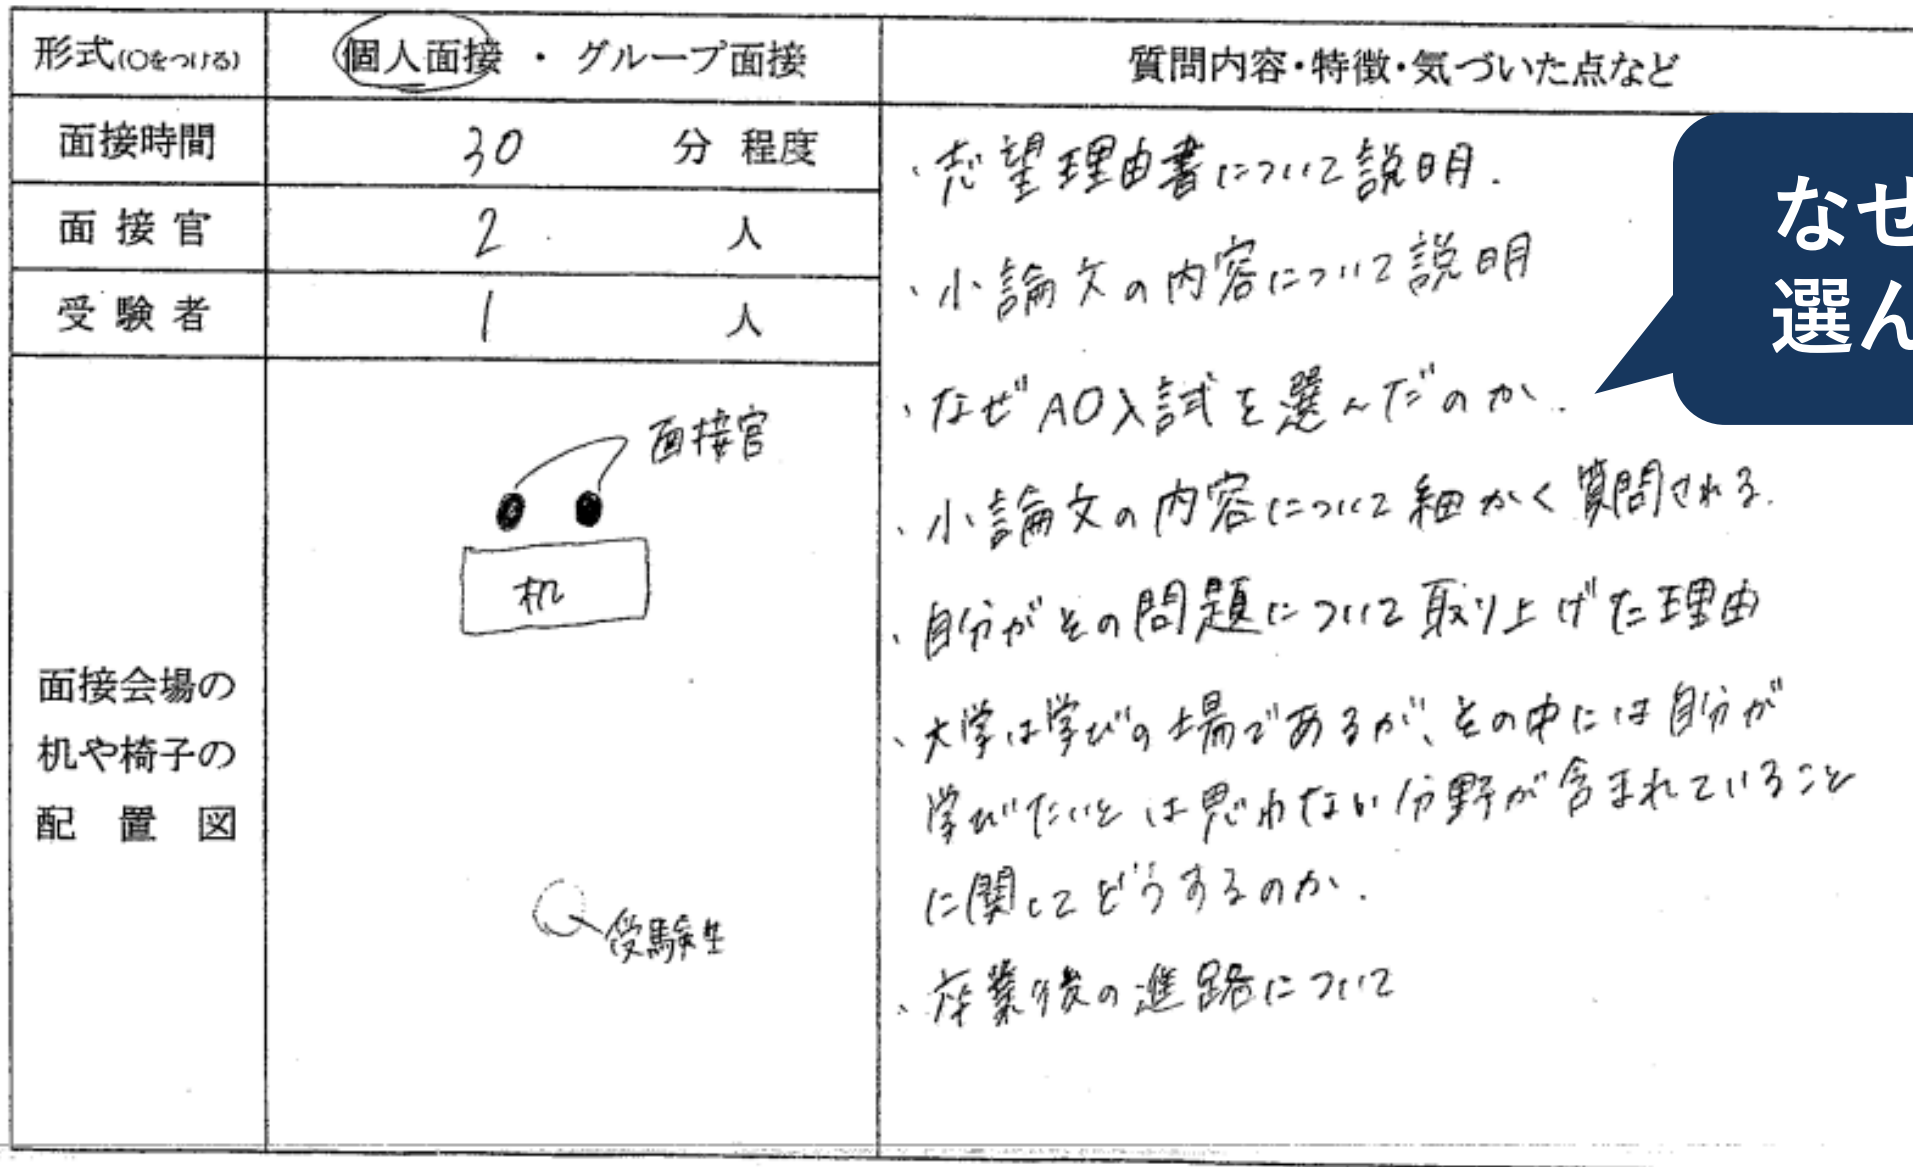 形式(○をつける) 個人面接 ・ グループ面接
面接時間 30 分 程度
面 接 官 2 人
受 験 者 1 人
面接会場の
机や椅子の
配 置 図
面接官
机
受験生
質問内容・特徴・気づいた点など
・志望理由書について説明.
・小論文の内容について説明
・なぜAO入試を選んだのか.
・小論文の内容について細かく質問される.
・自分がその問題について取り上げた理由
・大学は学びの場であるが、その中には自分が
学びたいとは思わない分野が含まれていること
に関してどうするのか.
・卒業後の進路について
なぜ
選ん